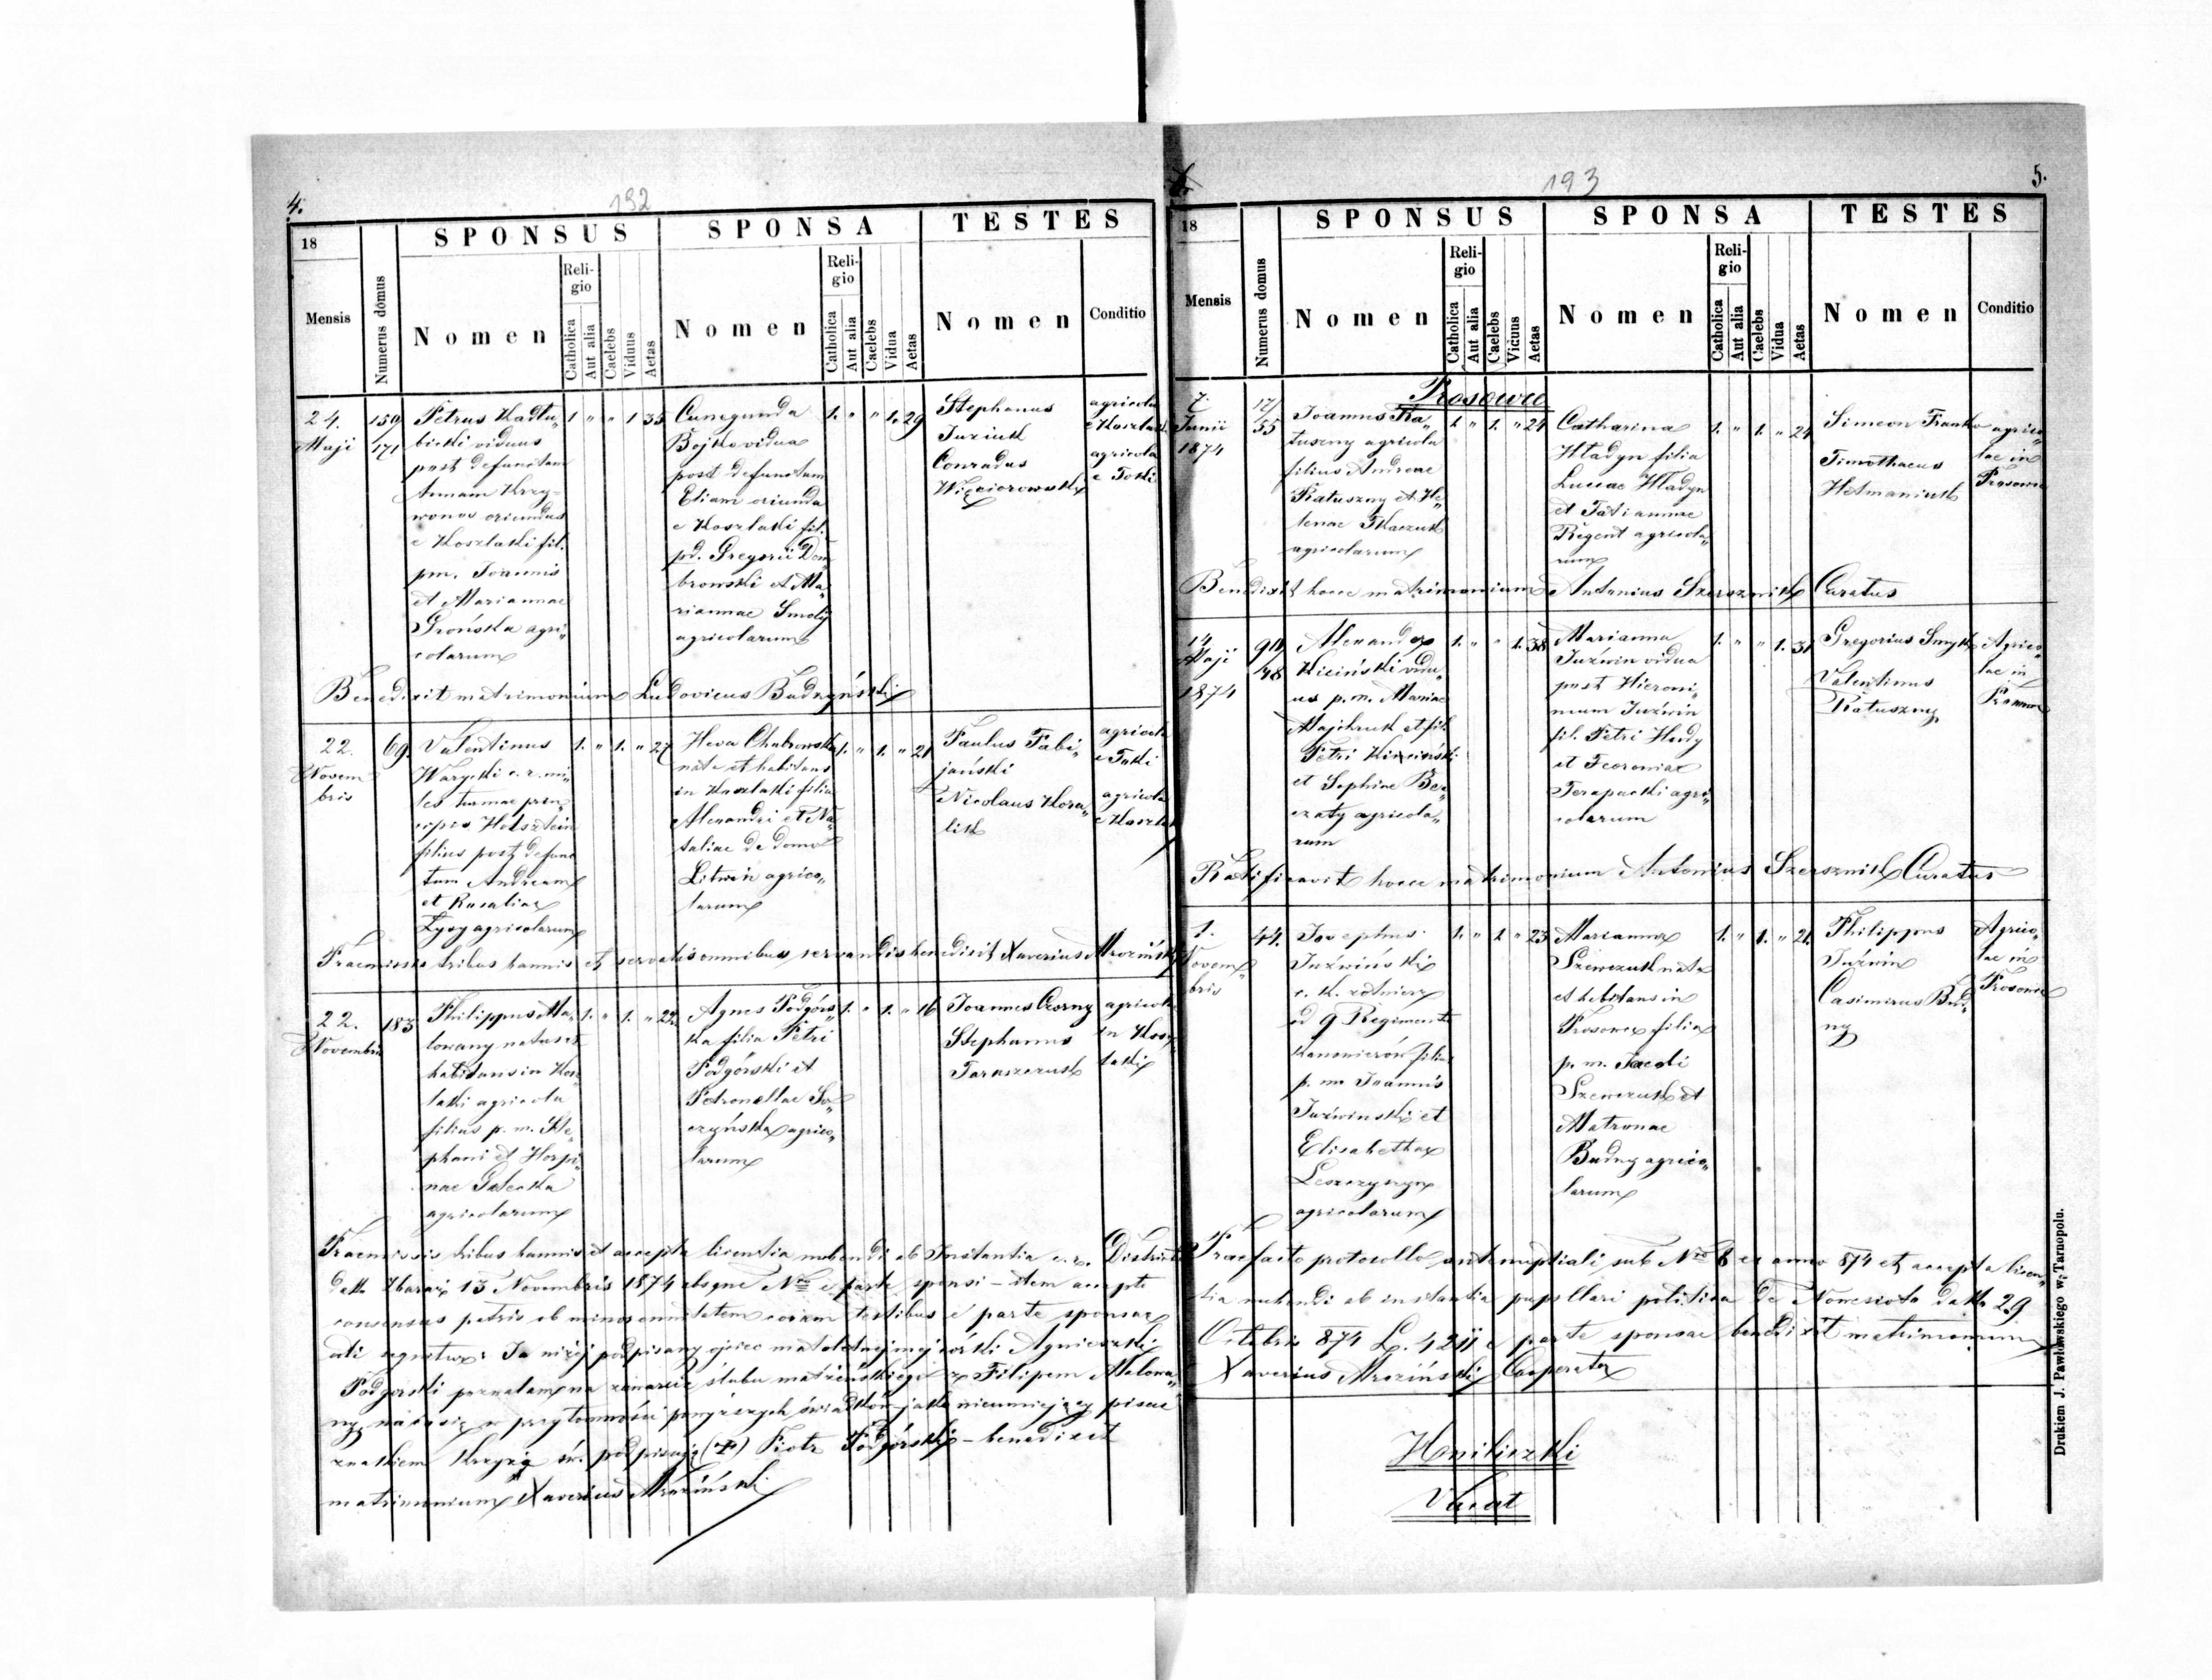 4.
192
18
SPONSUS
SPONSA
TESTES
Mensis
Numerus domus
Nomen
Religio
Catholica
Aut alia
Caelebs
Viduus
Aetas
Nomen
Religio
Catholica
Aut alia
Caelebs
Vidua
Aetas
Nomen
Conditio
24.
Maji
159
171
Petrus Kadłu„
bicki viduus
post defunctam
Annam Krzy-
wonos oriundus
e Koszlaki fil.
pm. Joannis
et Mariannae
Grońska agri„
colarum
1 „ „ 1 35
Cunegunda
Bojko vidua
post defunctum
Eliam oriunda
e Koszlaki fil.
pd. Gregorii Dom
browski et Ma„
riannae Smoly
agricolarum
1. „ „ 1. 29
Stephanus
Juziuk
Conradus
Więciorowski
agricola
e Koszlaki
agricola
e Toki
Benedixit matrimonium Ludovicus Budzyński
22.
Novem
bris
69.
Valentinus
Warycki c. r. mi„
les turmae prin„
cipis Holsztein
filius post defunc
tum Andream
et Rosaliae
Zyzy agricolarum
1. „ 1. „ 27
Heva Chabrowska
nata et habitans
in Koszlaki filia
Alexandri et Na„
taliae de domo
Litwin agrico„
larum
1. „ 1. „ 21
Paulus Fabi„
jański
Nicolaus Kora„
lik
agricola
e Toki
agricola
e Koszlaki
Praemissis tribus bannis et servatis omnibus servandis benedixit Xaverius Mroziński
22.
Novembris
183
Philippus Ma„
lowany natus et
habitans in Kosz
laki agricola
filius p. m. Ste„
phani et Horpi„
nae Galecka
agricolarum
1. „ 1. „ 22
Agnes Podgórs„
ka filia Petri
Podgórski et
Petronellae So„
czyńska agrico„
larum
1. „ 1. „ 16
Joannes Czorny
Stephanus
Taraszczuk
agricolae
in Kosz„
laki
Praemissis tribus bannis et accepta licentia nubendi ab Instantia c. r. District
datto Zbaraż 13 Novembris 1874 absque Nro e parte sponsi – item accepto
consensus patris ob minorennitatem coram testibus e parte sponsae
uti sequitur: Ja niżej podpisany ojciec małoletniej mej córki Agnieszki
Podgórski pozwalam na zawarcie ślubu małżeńskiego z Filipem Malowa„
ny, na co się w przytomności powyższych świadków jako nieumiejący pisać
znakiem Krzyża św. podpisuję (+) Piotr Podgórski – benedixit
matrimonium Xaverius Mroziński
193
5.
18
SPONSUS
SPONSA
TESTES
Mensis
Numerus domus
Nomen
Religio
Catholica
Aut alia
Caelebs
Vicuus
Aetas
Nomen
Religio
Catholica
Aut alia
Caelebs
Vidua
Aetas
Nomen
Conditio
Prosowce
7.
Junii
1874
17/
55
Joannes Ra„
tuszny agricola
filius Andreae
Ratuszny et He„
lenae Tkaczuk
agricolarum
1. „ 1. „ 24
Catharina
Hładyn filia
Lucae Hładyn
et Tatiannae
Regent agricola„
rum
1. „ 1. „ 24
Simeon Franko
Timothaeus
Hetmaniuk
agrico„
lae in
Prosowce
Benedixit hocce matrimonium Antonius Szersznik Curatus
14
Maji
1874
90/
48
Alexander
Kiciński vidu„
us p. m. Mariae
Majchruk et fil.
Petri Kiciński
et Sophiae Ber„
czaty agricola„
rum
1. „ „ 1. 38
Marianna
Juźwin vidua
post Hieroni„
mum Juźwin
fil. Petri Hudy
et Feoroniae
Terapacki agri„
colarum
1. „ „ 1. 31
Gregorius Smyk
Valentinus
Ratuszny
Agrico„
lae in
Ratificavit hocce matrimonium Antonius Szersznik Curatus
1.
Novem„
bris
44.
Josephus
Juźwiński
c. k. żołnierz
od 9 Regimentu
Kanonierów filius
p. m. Joannis
Juźwinski et
Elisabethae
Leszczyszyn
agricolarum
1. „ 1 „ 23
Marianna
Szewczuk nata
et habitans in
Prosowce filia
p. m. Jacobi
Szewczuk et
Matronae
Budny agrico„
larum
1. „ 1. „ 21.
Philippus
Juźwin
Casimirus Bud„
ny
Agrico„
lae in
Prosowce
Praefacto protocollo antenuptiali sub Nro 6 ex anno 874 et accepta licen„
tia nubendi ab instantia pupillari politica de Nowesioło datto 29
Octobris 874 L. 4211 e parte sponsae benedixit matrimonium
Xaverius Mroziński Cooperator
Hniliczki
Vacat
Drukiem J. Pawłowskiego w Tarnopolu.